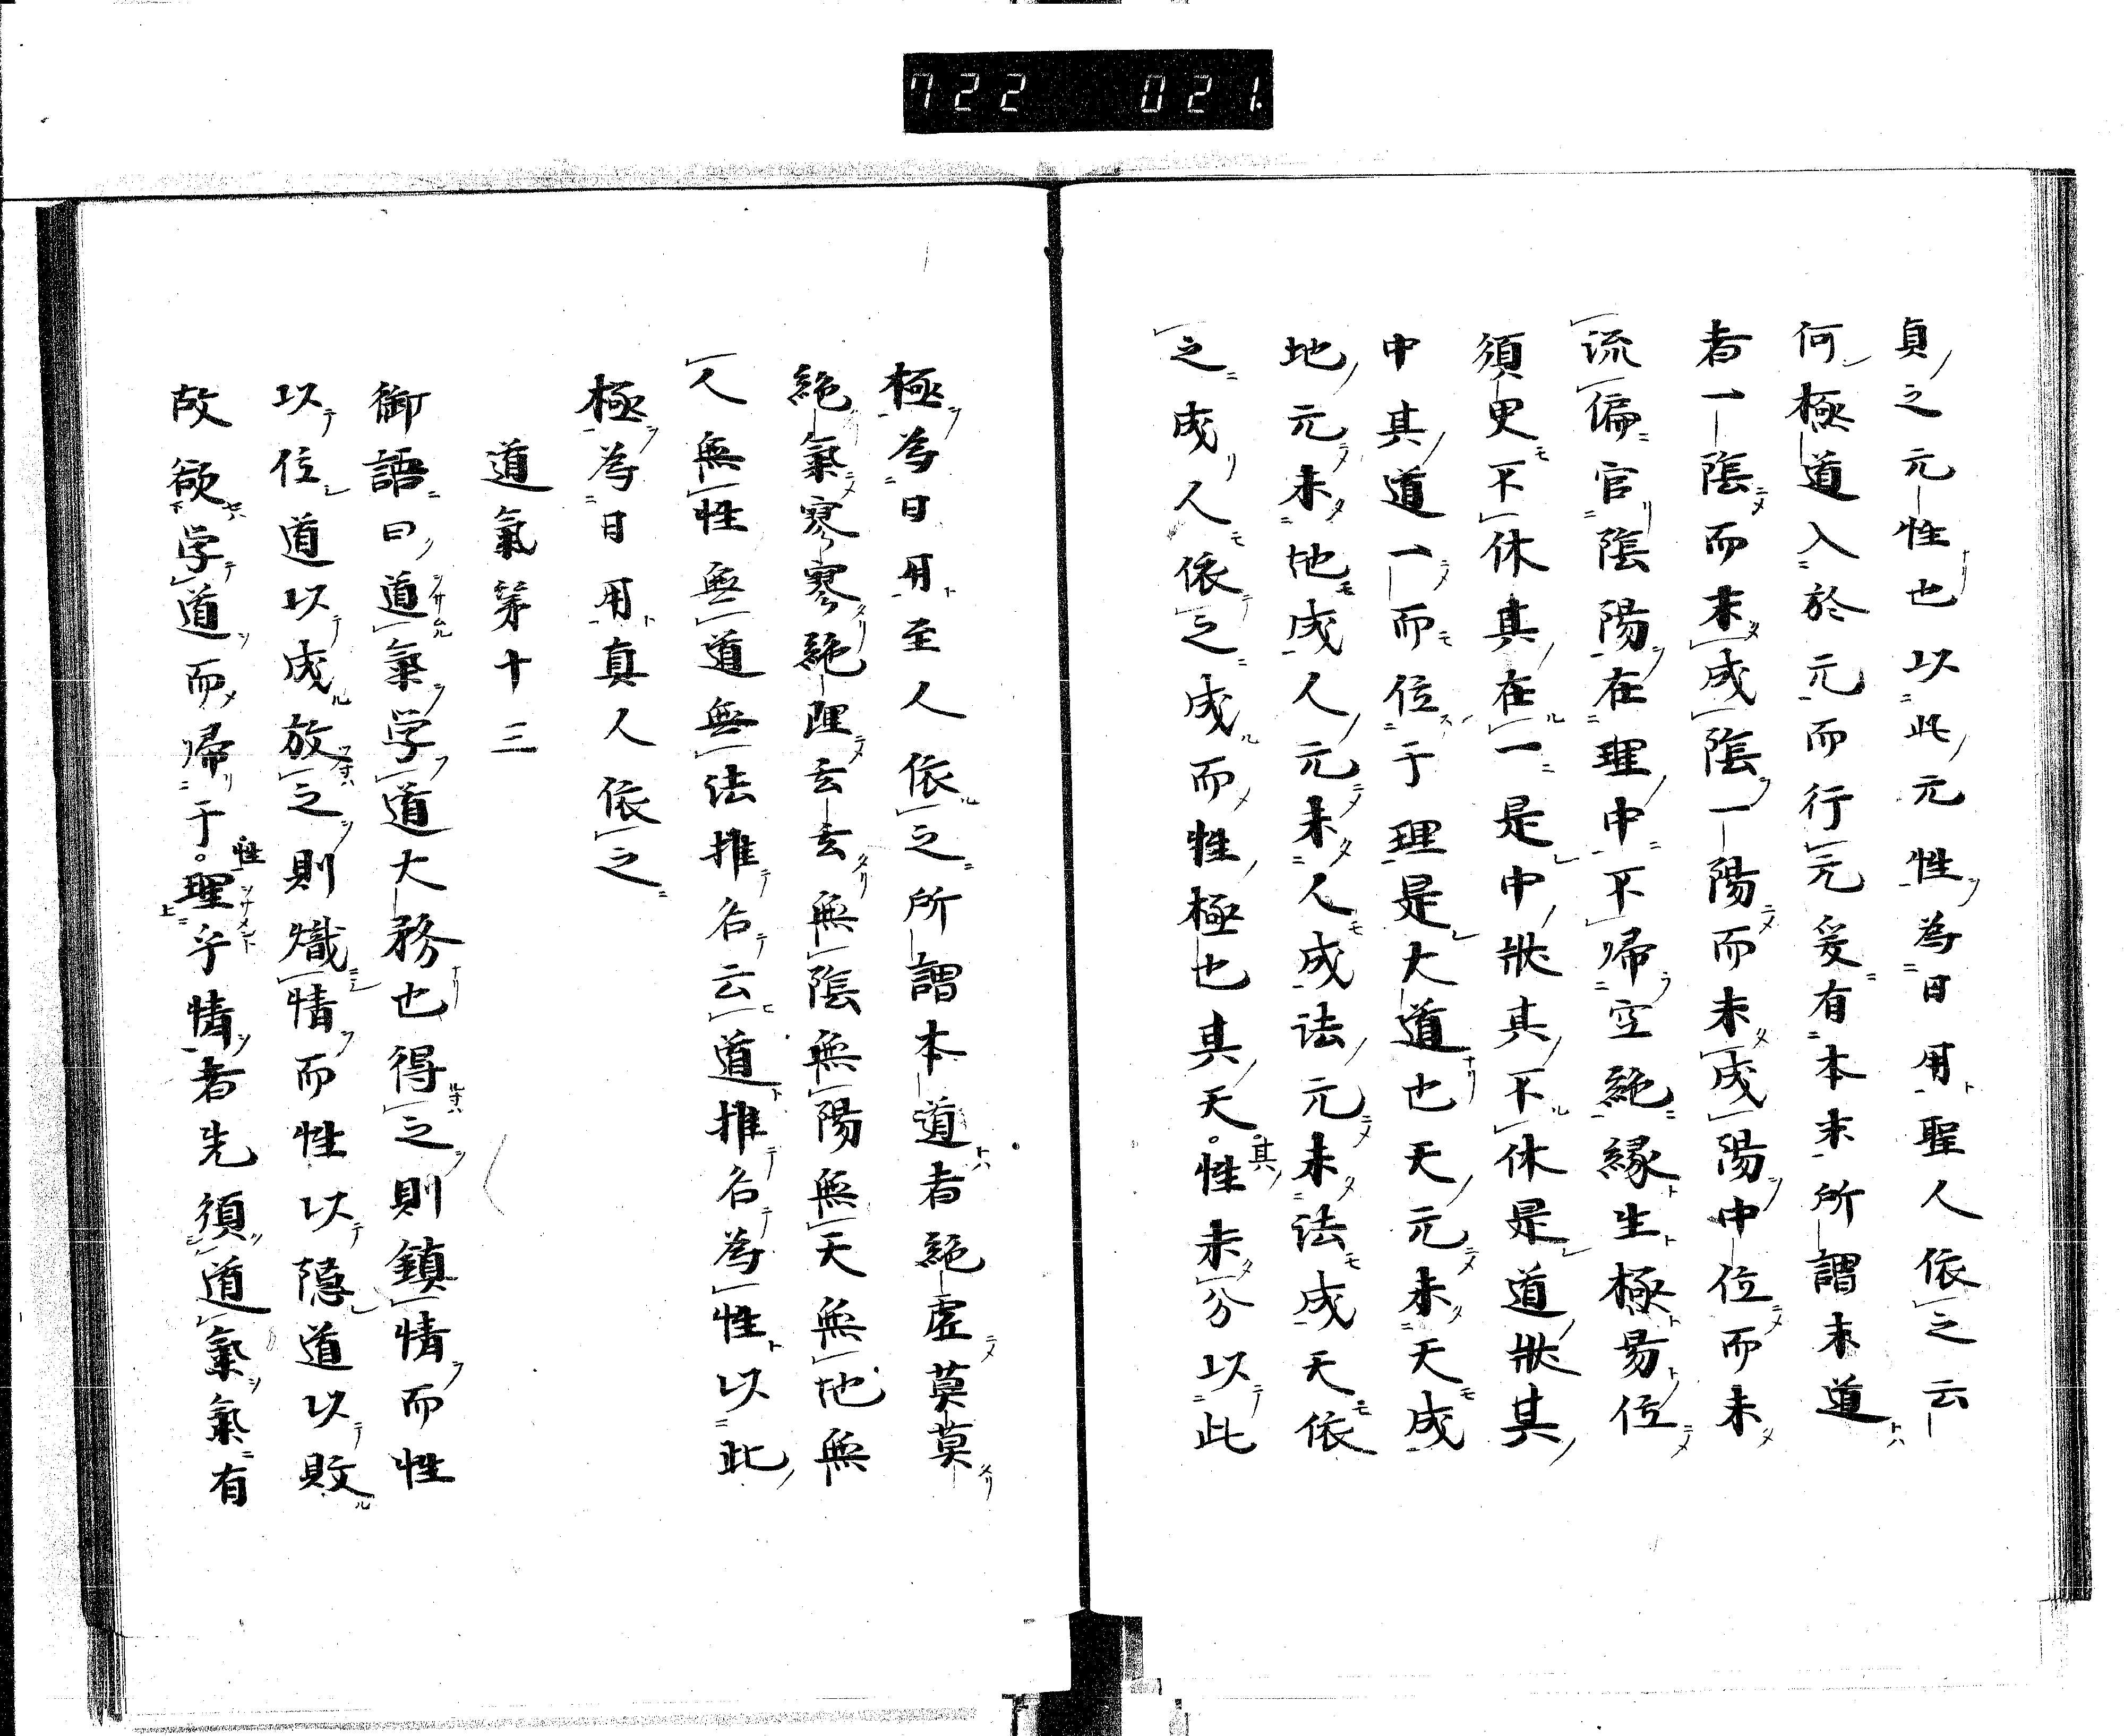 722 021.
貞之元性也以此元性為日用聖人依之云
何極道入於元而行元爰有本末所謂末道
者一陰而未成陰一陽而未成陽中位而未
流偏官陰陽在理中不帰空絶縁生極易位
須更不休其在一是中状其不休是道状其
中其道一而位于理是大道也天元未天成
地元未地成人元未人成法元未法成天依
之成人依之成而性極也其天其性未分以此
極為日用至人依之所謂本道者絶虚莫莫
絶氣寥寥絶理玄玄無陰無陽無天無地無
人無性無道無法推名云道推名為性以此
極為日用真人依之
道氣第十三
御語曰道氣学道大務也得之則鎮情而性
以位道以成放之則熾情而性以隠道以敗
故欲学道而帰于性聖乎情者先須道氣氣有